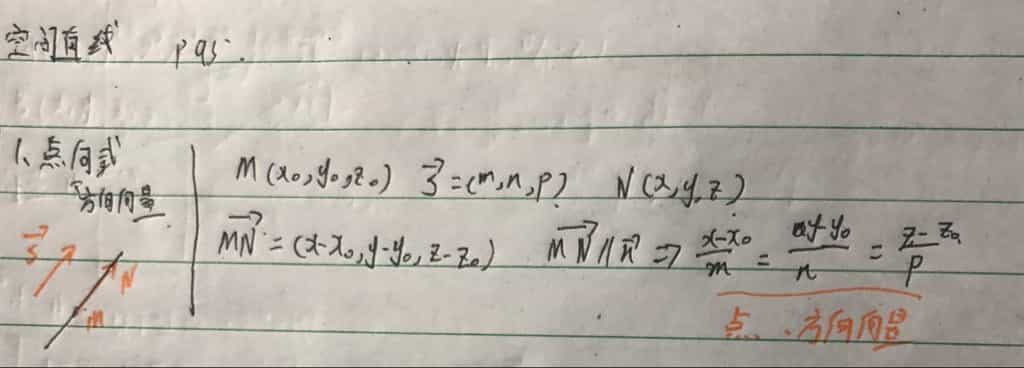 空间直线 P95.
1、点向式
方向向量
M(x₀,y₀,z₀) s⃗=(m,n,p) N(x,y,z)
MN⃗=(x-x₀,y-y₀,z-z₀) MN⃗∥n⃗ ⇒ (x-x₀)/m = (y-y₀)/n = (z-z₀)/p
s⃗
N
M
点、方向向量